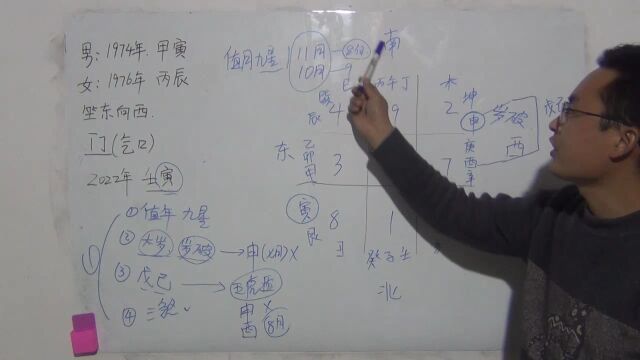 男:1974年.甲寅
女:1976年 丙辰
坐东向西.
门(气口)
2022年 壬寅
①值年 九星
②太岁、岁破→申(x月)X
③戊己→五虎遁
④三煞
申 X
酉 8月
值月九星
11月
10月 9
南
巳 丙午丁
辰 4 9 2 坤
申 岁破
酉
东 乙卯甲 3 7 庚酉辛
寅 艮 8 1
丑 癸子壬
北